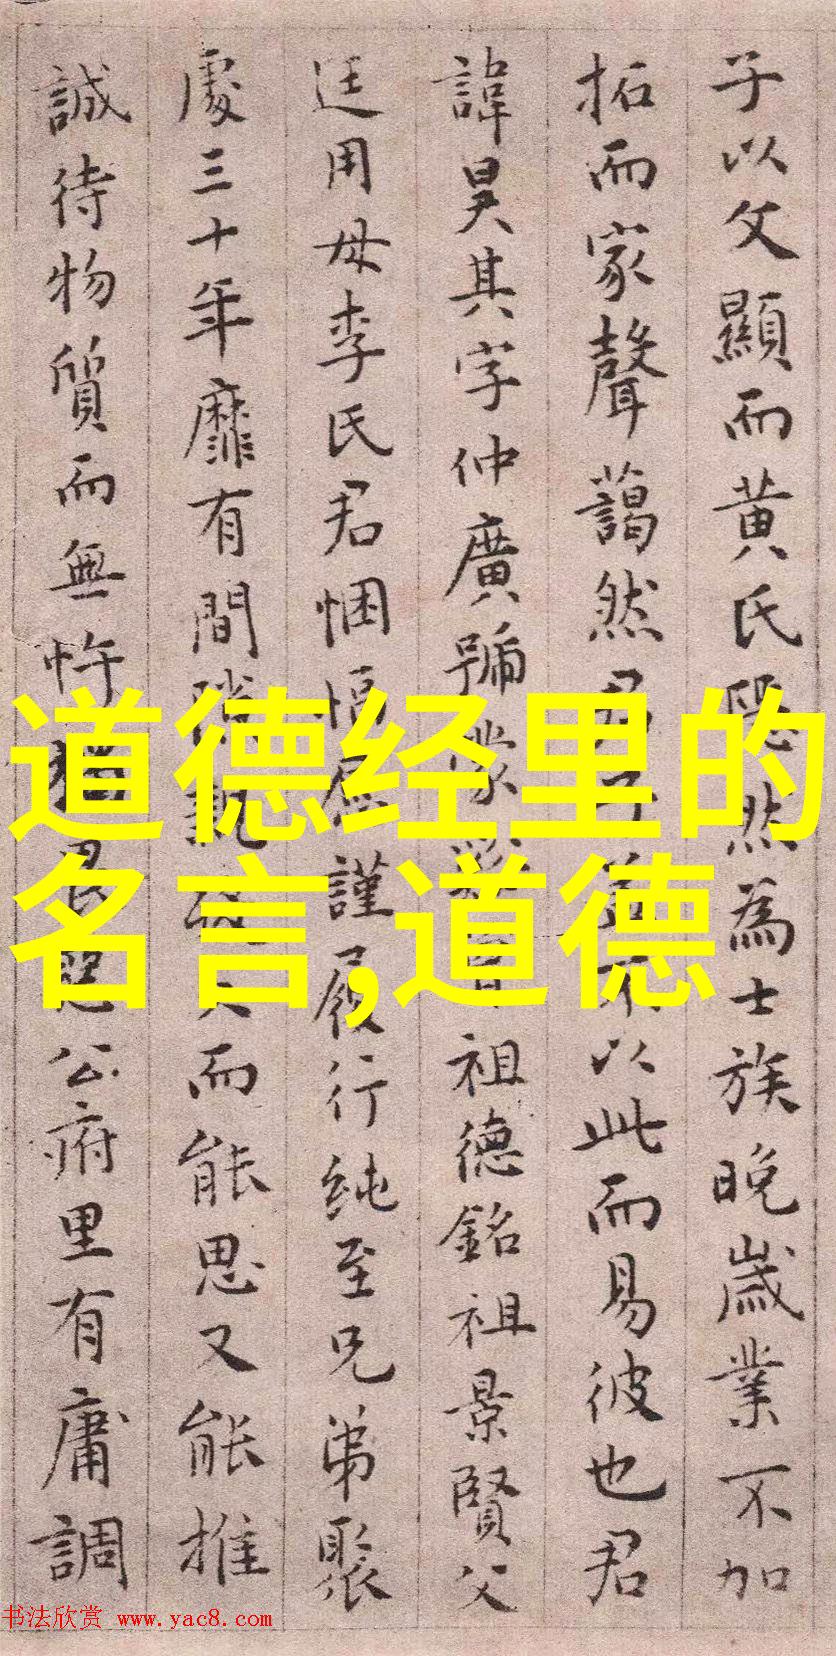 子以父顯而黄氏隱然為士族晚歲業不加
拓而家聲藹然君子蓋不以此而易彼也君
諱昊其字仲廣號祖德銘祖景賢父
廷用母李氏君悃愊謹履行純至兄弟聚
處三十年靡有間隙而能思又能推
誠待物質而無忤公府里有庸調
道德经里的
名言,道德
书法欣赏 www.yac8.com